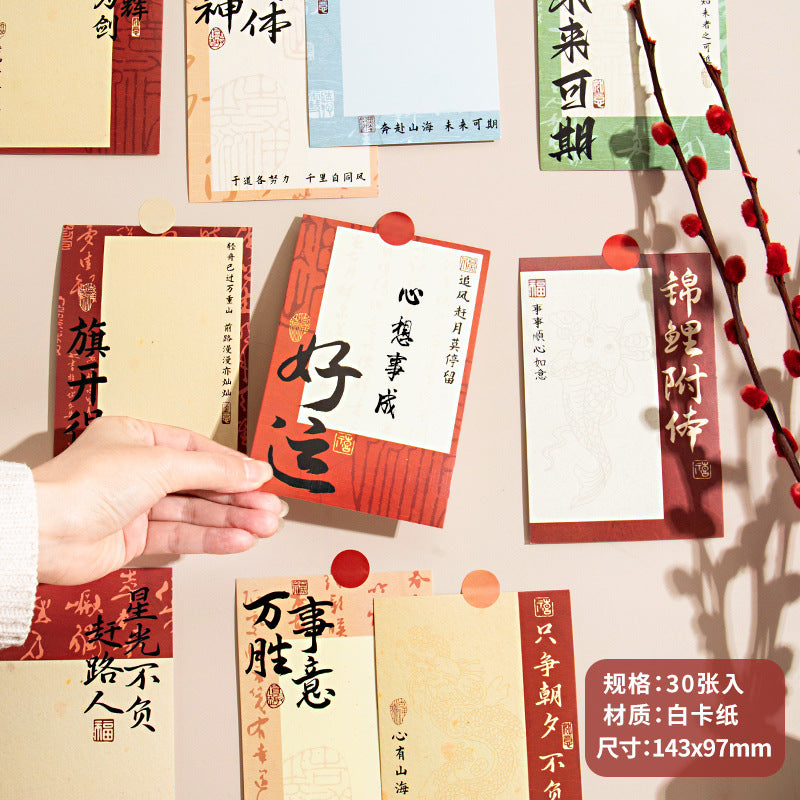 为剑
辉
神
体
于道各努力 千里自同风
奔赴山海 未来可期
未来可期
旗开得
轻舟已过万重山 前路漫漫亦灿灿
好运
心想事成
追风赶月莫停留
福
事事顺心如意
锦鲤附体
星光不负
赶路人
福
万事
胜意
心有山海
只争朝夕不负
规格:30张入
材质:白卡纸
尺寸:143x97mm